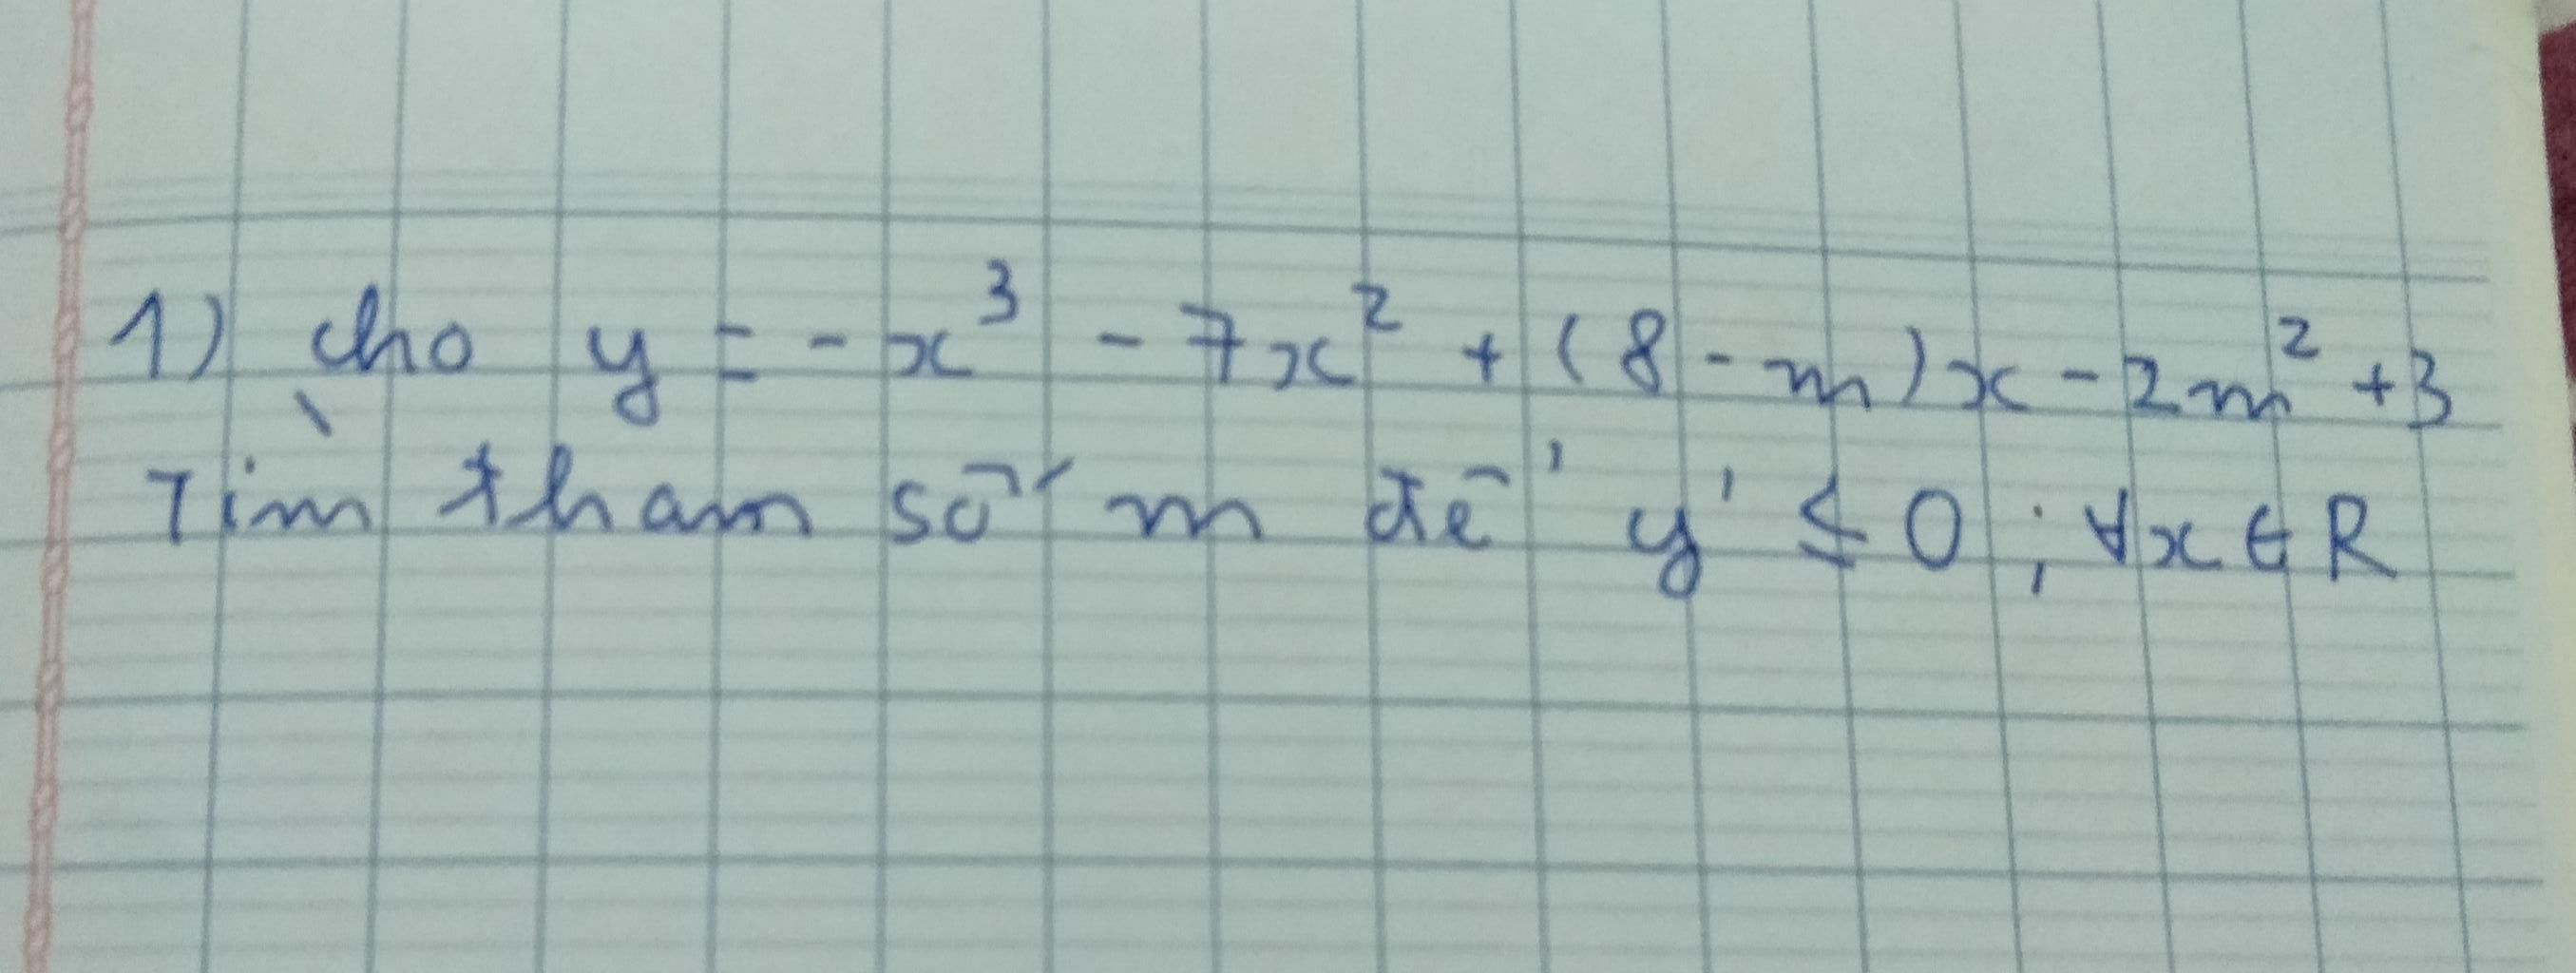 1) cho y = -x³ - 7x² + (8 - m)x - 2m² + 3
Tìm tham số m để y' ≤ 0 ; ∀x ∈ R